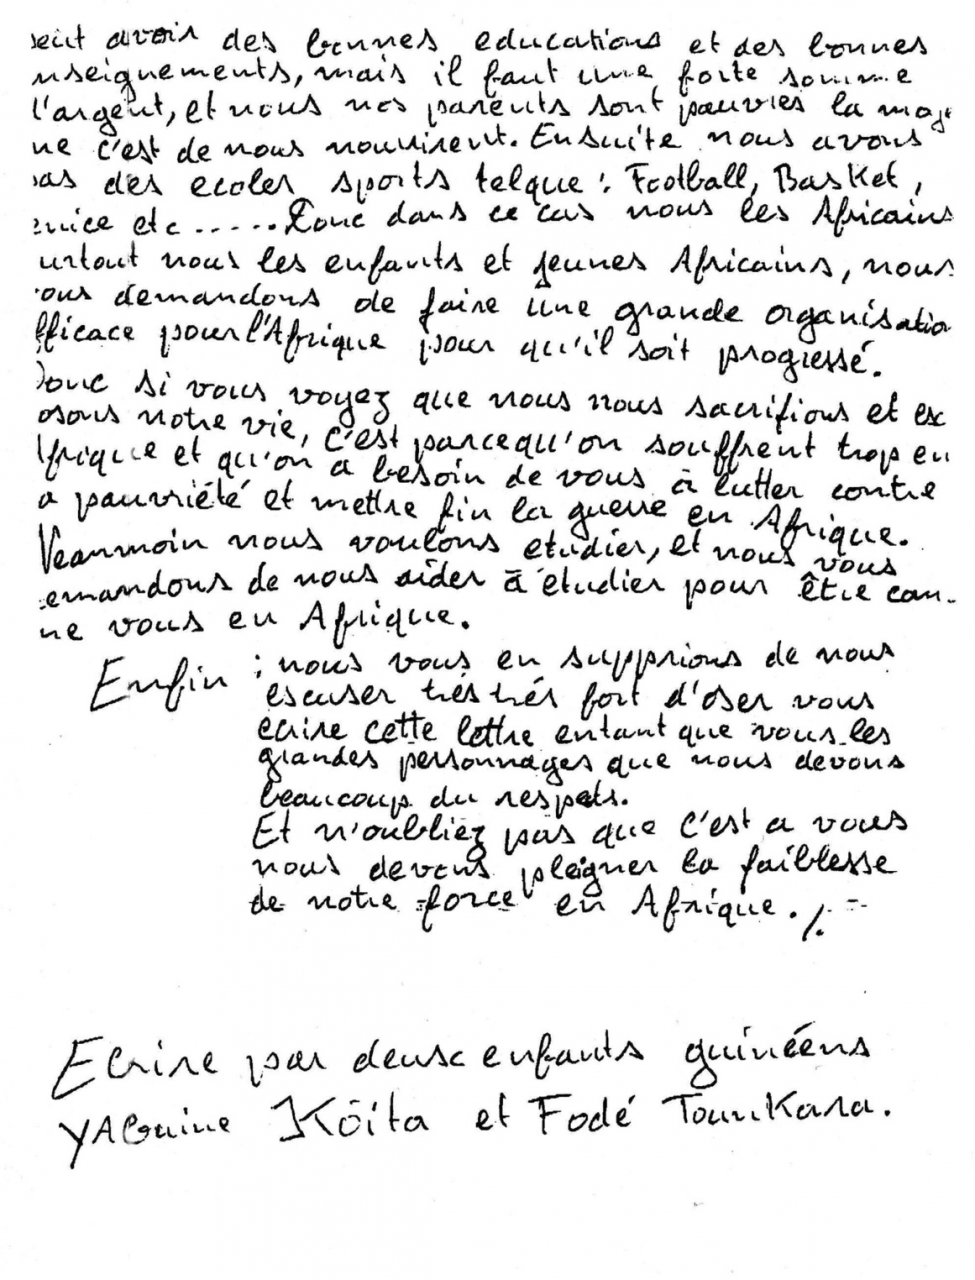 peut avoir des bonnes educations et des bonnes
nseignements, mais il faut une forte somme
l'argent, et nous nos parents sont pauvres la maj
ne c'est de nous nourrirent. Ensuite nous avons
pas des ecoles sports telque : Football, Basket,
ennice etc ..... Donc dans ce cas nous les Africains
urtout nous les enfants et jeunes Africains, nous
ous demandons de faire une grande organisatio
fficace pour l'Afrique pour qu'il soit progressé.
Donc si vous voyez que nous nous sacrifions et ex
osons notre vie, c'est parcequ'on souffrent trop en
frique et qu'on a besoin de vous à lutter contre
a pauvriété et mettre fin la guerre en Afrique.
Neanmoin nous voulons etudier, et nous vous
emandons de nous aider à etudier pour être com-
ne vous en Afrique.
Enfin : nous vous en supprions de nous
escuser très très fort d'oser vous
ecrire cette lettre entant que vous les
grandes personnages que nous devons
beaucoup du respets.
Et n'oubliez pas que c'est a vous
nous devons pleigner la faiblesse
de notre force en Afrique. ./.
Ecrire par deux enfants guinéens
YAGuine Köita et Fodé Tounkara.